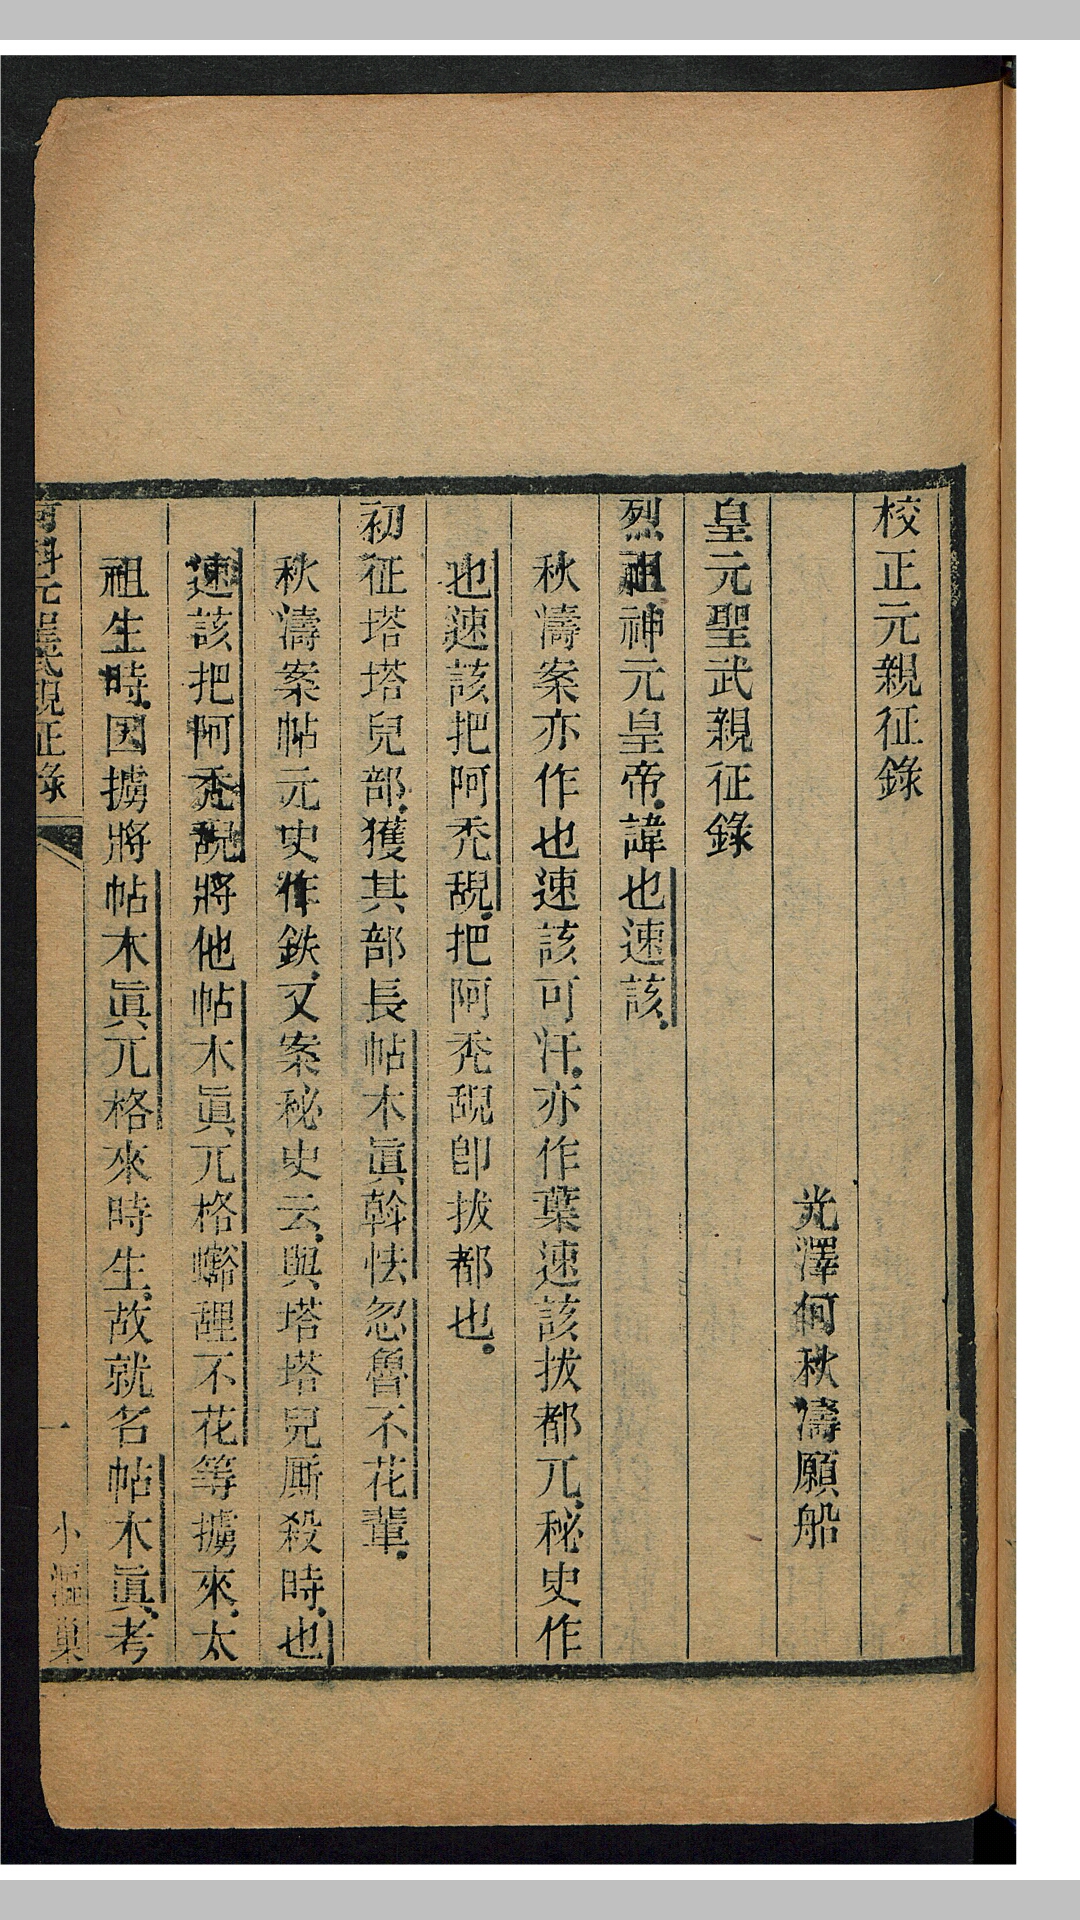 校正元親征錄
光澤何秋濤願船
皇元聖武親征錄
烈祖神元皇帝諱也速該
秋濤案亦作也速該可汗亦作葉速該拔都兀秘史作
也速該把阿禿䚟把阿禿䚟卽拔都也
初征塔塔兒部獲其部長帖木眞斡怯忽魯不花輩
秋濤案帖元史作鉄又案秘史云與塔塔兒厮殺時也
速該把阿禿䚟將他帖木眞兀格豁理不花等擄來太
祖生時因擄將帖木眞兀格來時生故就名帖木眞考
元聖武親征錄
一
小漚巢